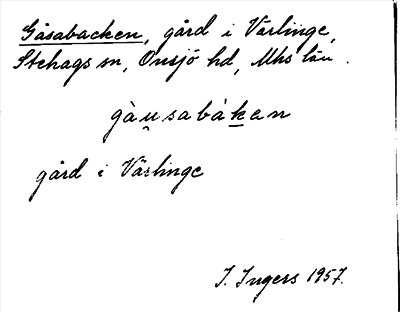 Gåsabacken, gård i Värlinge,
Stehags sn, Onsjö hd, Mhs län.
gàu̯sabàk̲en
gård i Värlinge
I. Ingers 1957.